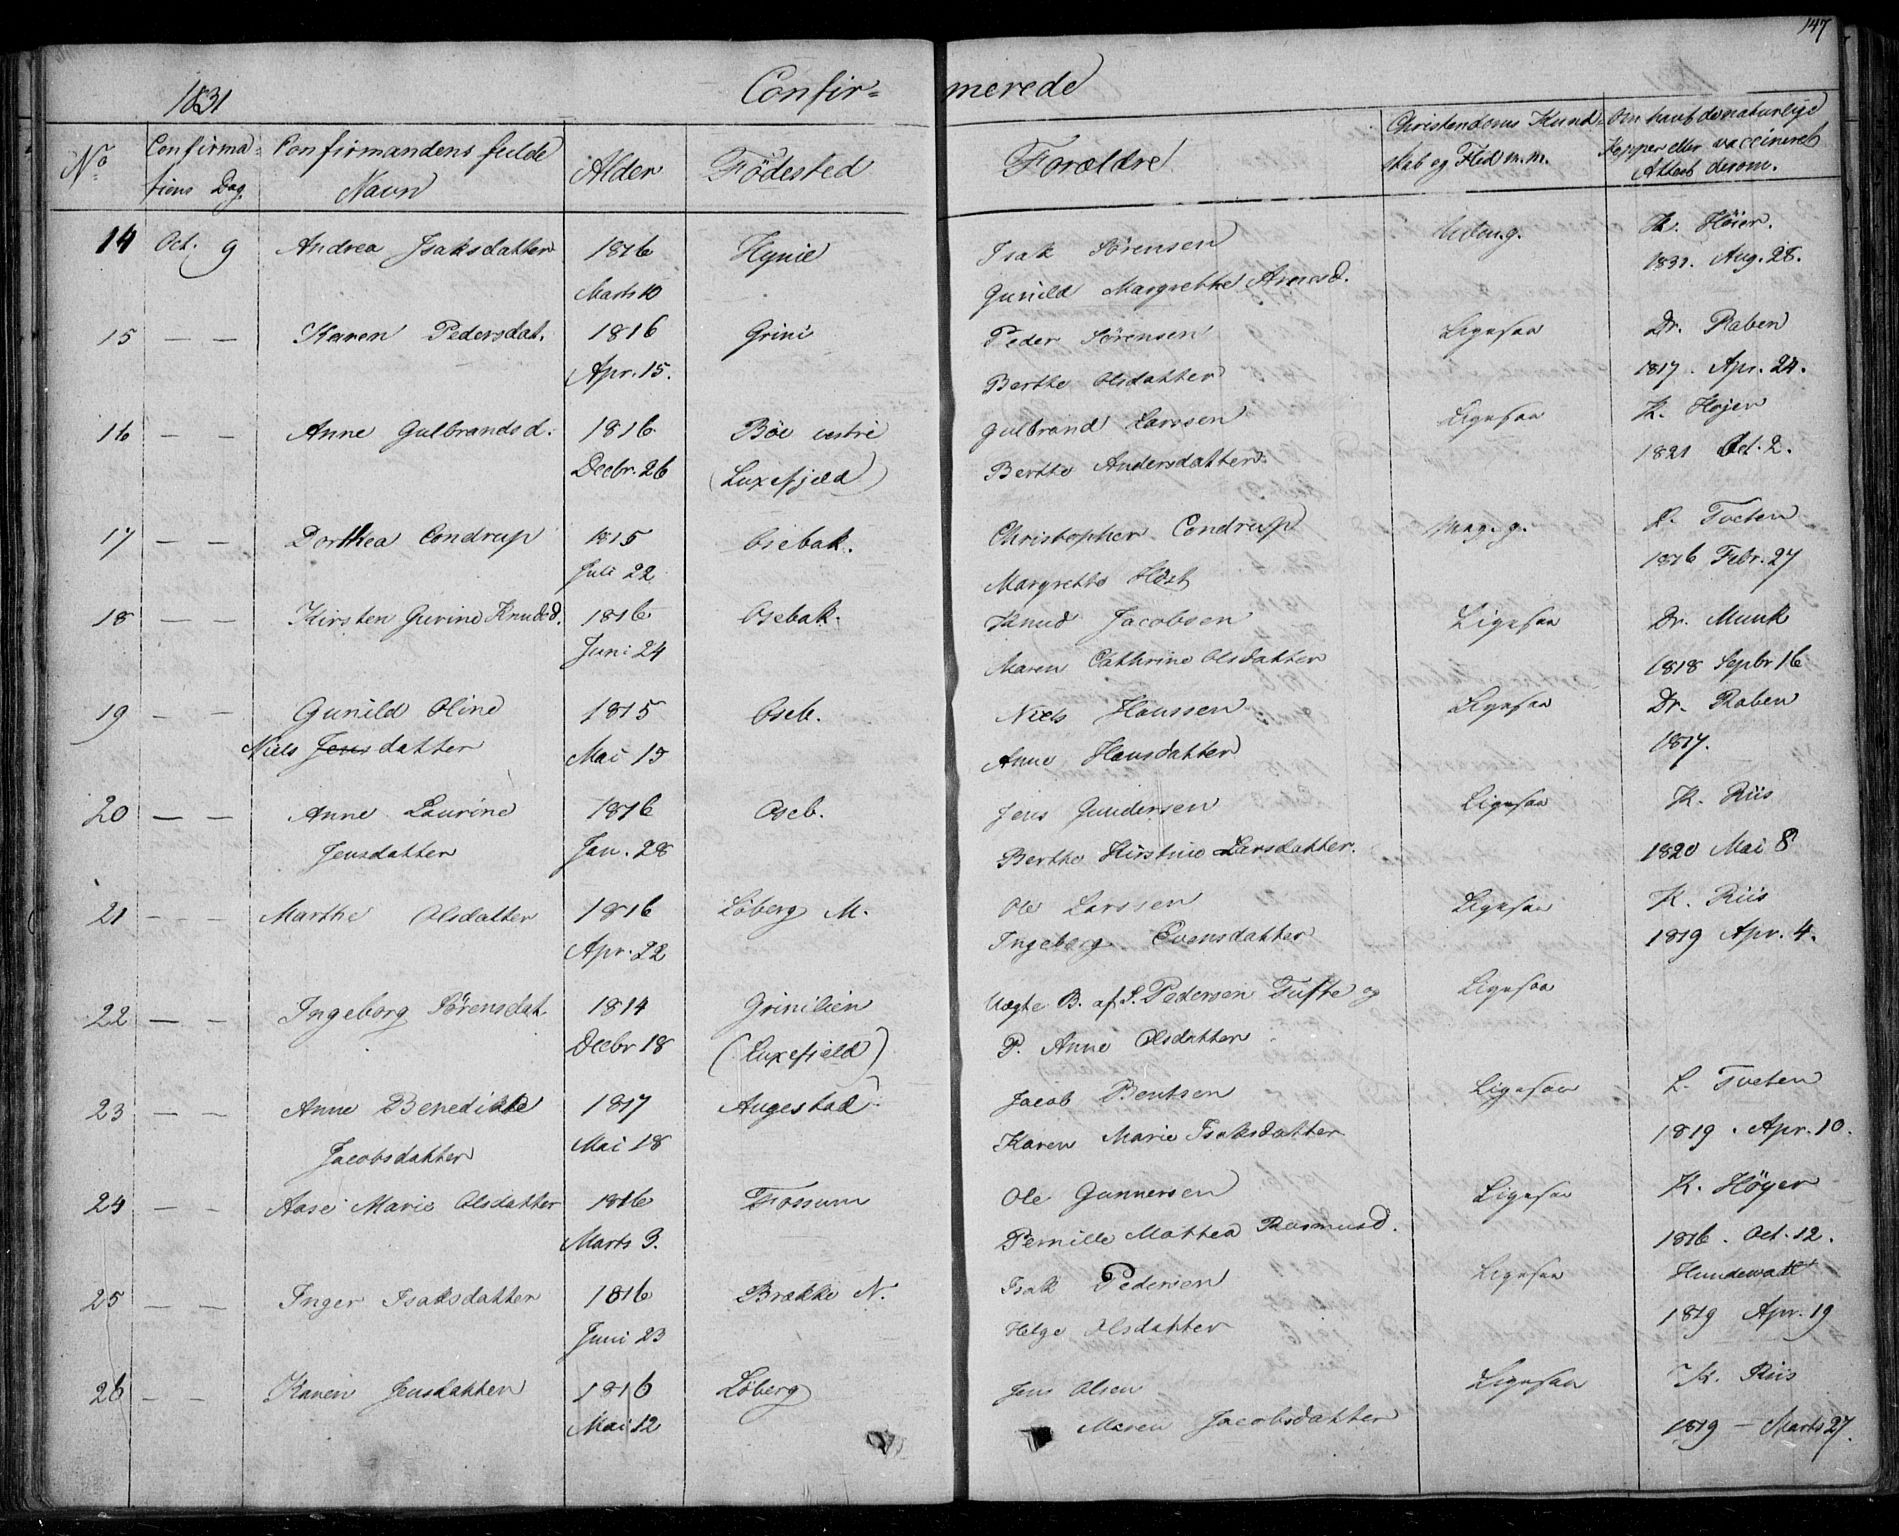 147
1831 Confir= merede
No Confirmations Dag Confirmandens fulde Navn Alder Födested Forældre Christendoms Kundskab og Flid m.m. Om havt de naturlige Kopper eller vaccineret Attest derom.
14 Oct. 9 Andrea Isaksdatter 1816 Hynie Isak Sörensen Höier.
Marts 10 Gunild Margrethe 1831. Aug. 28.
15 — — Karen Pedersdat. 1816 Grini Peder Sörensen Ligesaa Dr. Raben
Apr. 15. Berthe Olsdatter 1817. Apr. 24.
16 — — Anne Gulbrandsd. 1816 Böe vestre Gulbrand Larssen Ligesaa K. Höjer
Decbr. 26 (Luxefjeld) Berthe Andersdatter 1821 Oct. 2.
17 — — Dorthea Condrup 1815 Osebak. Christopher Condrup Mag. g. L. Tveten
Juli 22 Margrethe Höst 1816 Febr. 27
18 — — Kirsten Gurine Knudsd. 1816 Osebak. Knud Jacobsen Ligesaa Dr. Munk
Juni 24 Maren Cathrine Olsdatter 1818 Sepbr 16
19 — — Gunild Oline 1815 Oseb. Niels Hanssen Ligesaa Dr. Raben
Niels Jens datter Mai 15 Anne Hansdatter 1817.
20 — — Anne Laurine 1816 Oseb. Jens Gundersen Ligesaa K. Riis
Jensdatter Jan. 28 Berthe Kirstine Larsdatter. 1820 Mai 8
21 — — Marthe Olsdatter 1816 Löberg M. Ole Larssen Ligesaa K. Riis
Apr. 22 Ingeborg Evensdatter 1819 Apr. 4.
22 — — Ingeborg Sörensdat. 1814 Grinilien Uægte B. af S. Pedersen Tufte og Ligesaa
Decbr 18 (Luxefjeld) P. Anne Olsdatter
23 — — Anne Benedikte 1817 Augestad Jacob Bentsen Ligesaa L. Tveten
Jacobsdatter Mai 18 Karen Marie Isaksdatter 1819. Apr. 10.
24 — — Aase Marie Olsdatter 1816 Fossum Ole Gunnersen Ligesaa K. Höyer
Marts 3. Pernille Mathea Rasmusd. 1816. Oct. 12.
25 — — Inger Isaksdatter 1816 Brække N. Isak Pedersen Ligesaa Hundewatt
Juni 23 Helge Olsdatter 1819 Apr. 19
26 — — Karen Jensdatter 1816 Löberg Jens Olsen Ligesaa K. Riis
Mai 12 Maren Jacobsdatter 1819 — Marts 27.